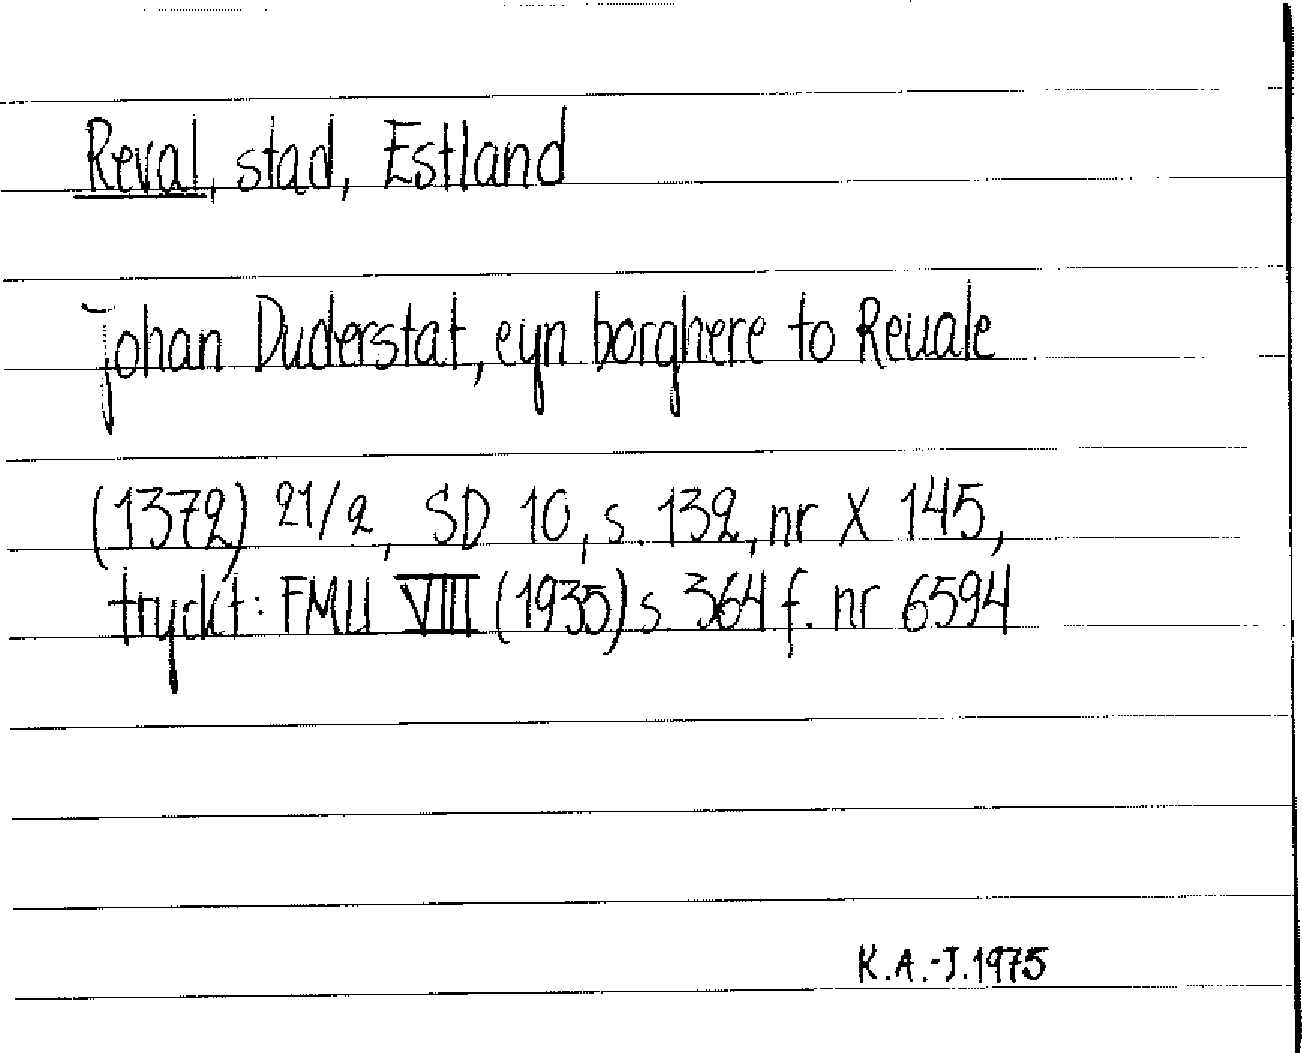 Reval, stad, Estland
Johan Duderstat, eyn borghere to Reuale
(1372) 21/2, SD 10, s. 132, nr X 145,
tryckt: FMU VIII (1935) s 364 f. nr 6594
K.A.-J. 1975